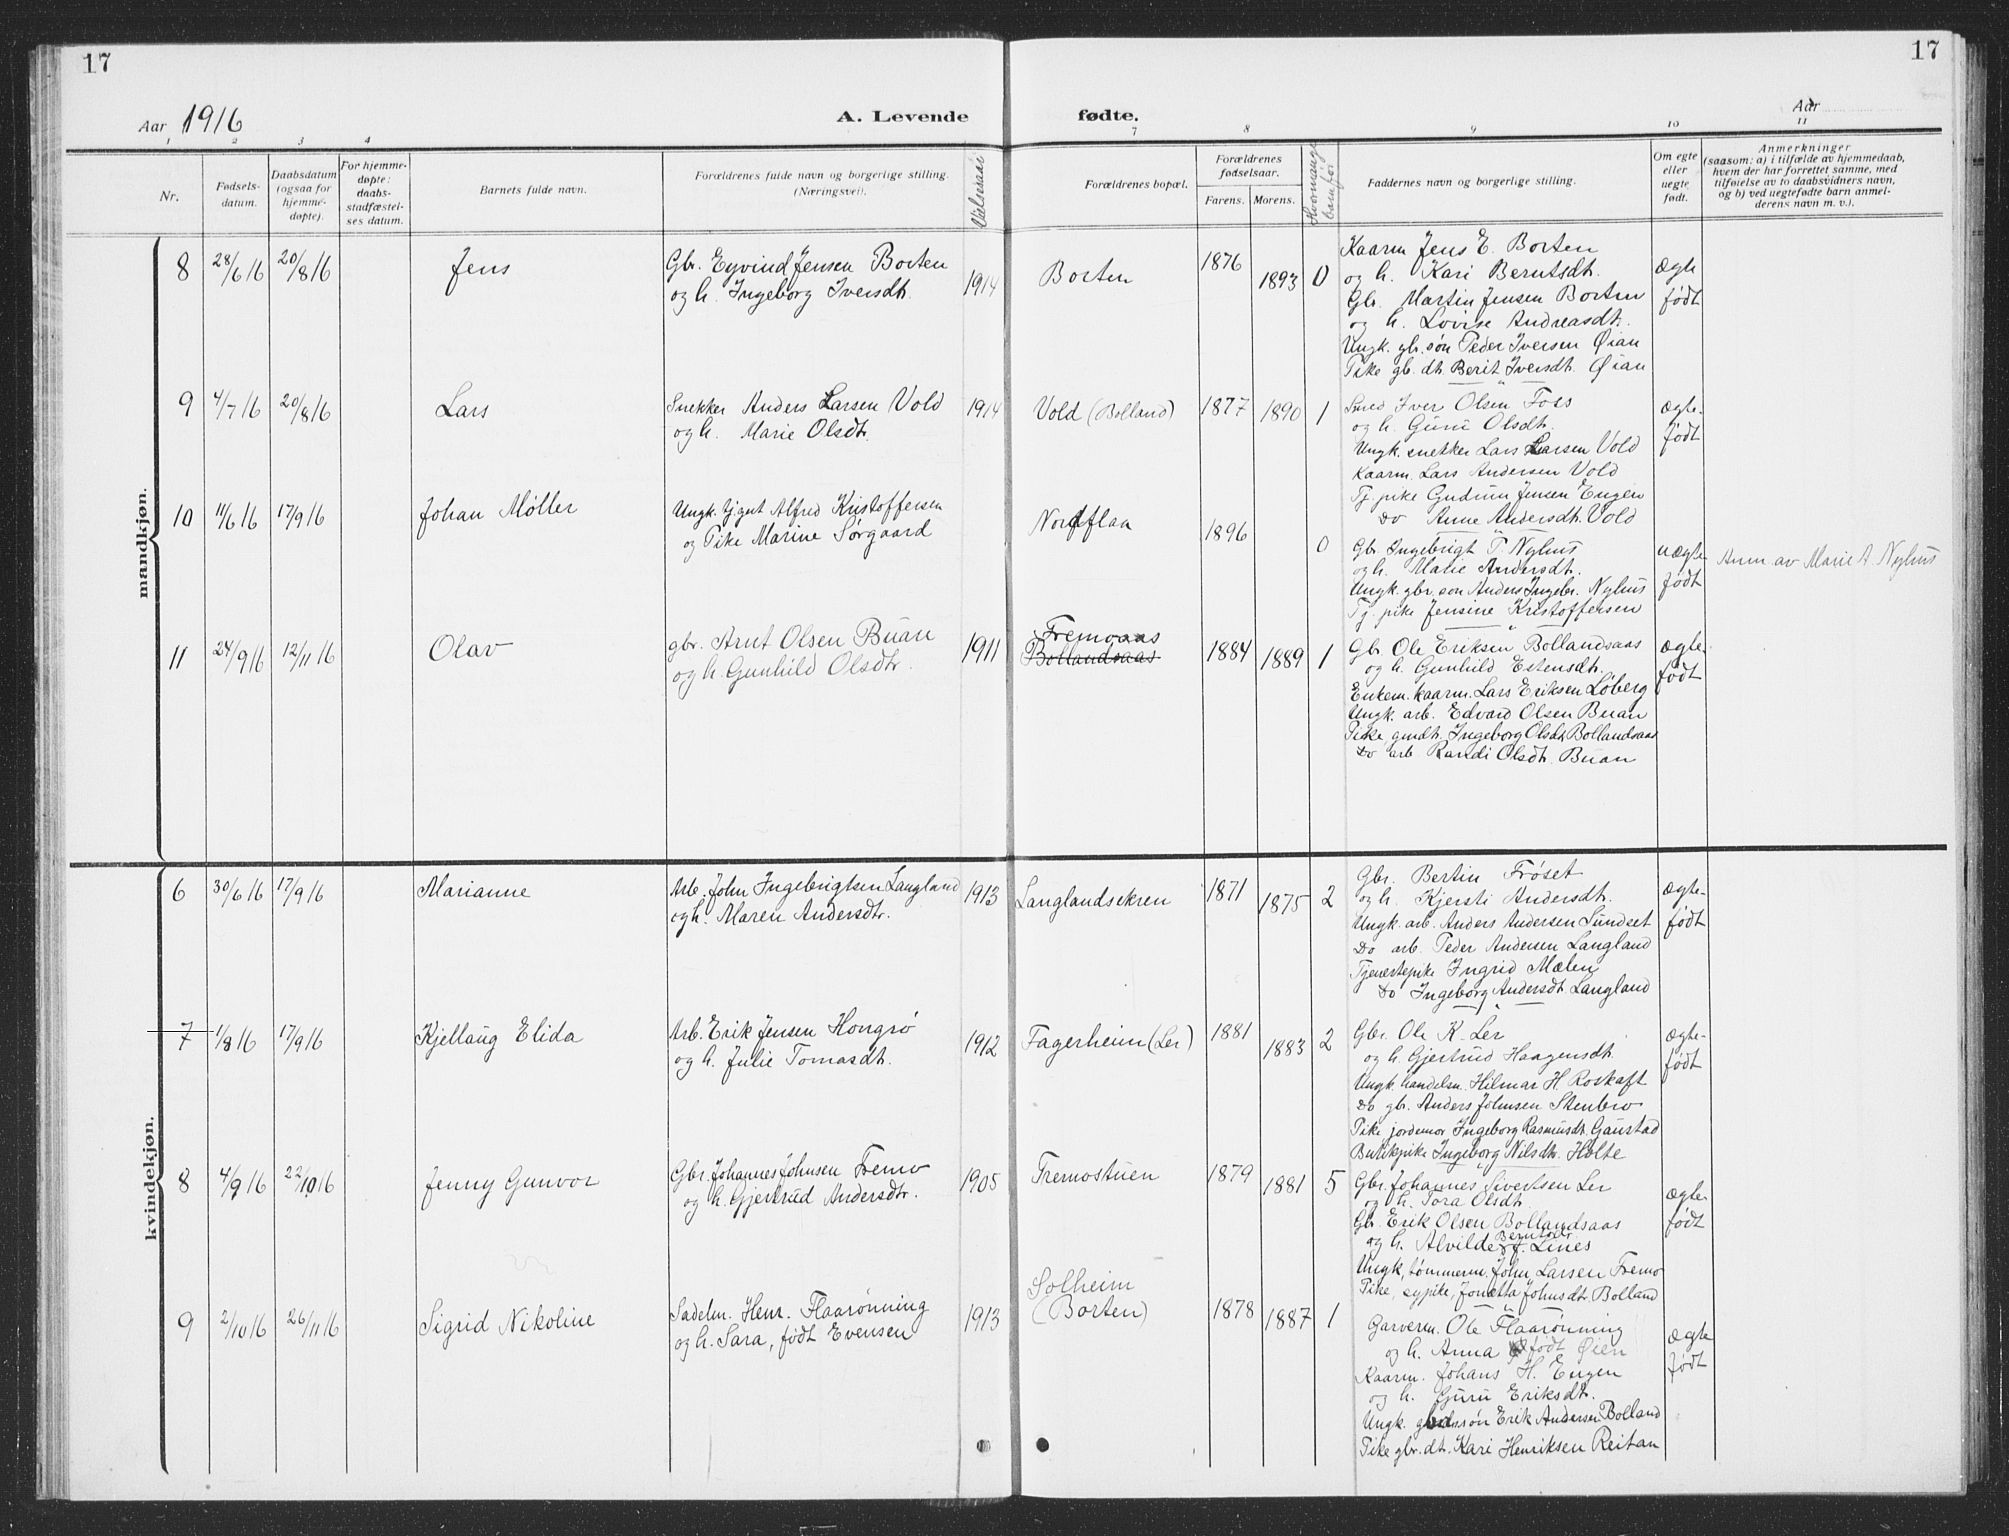 17
17
Aar 1916
A. Levende fødte.
Aar
1 2 3 4 7 8 9 10 11
Nr.
Fødsels-
datum.
Daabsdatum
(ogsaa for
hjemme-
døpte).
For hjemme-
døpte:
daabs-
stadfæstel-
ses datum.
Barnets fulde navn.
Forældrenes fulde navn og borgerlige stilling.
(Næringsvei).
Vielsesaar
Forældrenes bopæl.
Forældrenes
fødselsaar.
Farens. Morens.
Hvormange
barn før
Faddernes navn og borgerlige stilling.
Om egte
eller
uegte
født.
Anmerkninger
(saasom: a) i tilfælde av hjemmedaab,
hvem der har forrettet samme, med
tilføielse av to daabsvidners navn,
og b) ved uegtefødte barn anmel-
derens navn m. v.).
mandkjøn.
8 28/6 16 20/8 16 Jens
Gbr. Eyvind Jensen Borten
og h. Ingeborg Iversdt.
1914 Borten 1876 1893 0
Kaarm Jens E. Borten
og h. Kari Berntsdt.
Gbr. Martin Jensen Borten
og h. Lovise Andreasdt.
Ungk. gbr. søn Peder Iversen Øian
Pike gb. dt. Berit Iversdt. Øian
Ægte
født
9 4/7 16 20/8 16 Lars
Snekker Anders Larsen Vold
og h. Marie Olsdt.
1914 Vold (Bolland) 1877 1890 1
Smed Iver Olsen Foss
og h. Guru Olsdt.
Ungk. snekker Lars Larsen Vold
Kaarm. Lars Andersen Vold
Tj. pike Gudrun Jensen Engen
Do Anne Andersdt. Vold
Ægte-
født
10 11/6 16 17/9 16 Johan Møller
Ungk. tj.gut Alfred Kristoffersen
og Pike Marine Sørgaard
Nordflaa 1896 0
Gbr Ingebrigt P. Nyhus
og h. Marie Andersdt.
Ungk. gbr. søn Anders Ingebr. Nyhus
Tj. pike Jensine Kristoffersen
uægte
født
Anm. av Marie A. Nyhus
11 24/9 16 12/11 16 Olav
gbr. Arnt Olsen Buan
og h. Gunhild Olsdtr.
1911
Fremoaas
Bollandsaas
1884 1889 1
Gbr. Ole Eriksen Bollandsaas
og h. Gunhild Estensdt.
Enkem. kaarm. Lars Eriksen Løberg
Ungk. arb. Edvard Olsen Buan
Pike, gmdt. Ingeborg Olsdt Bollandsaas
Do arb. Randi Olsdt. Buan
Ægte
født
kvindekjøn.
6 30/6 16 17/9 16 Marianne
Arb. John Ingebrigtsen Langland
og h. Maren Andersdtr.
1913 Langlandsekren 1871 1875 2
Gbr. Bertin Frøset
og h. Kjersti Andersdt.
Ungk. arb. Anders Andersen Sundset
Do arb. Peder Andersen Langland
Tjenestepike Ingrid Mælen
Do Ingeborg Andersdt. Langland
Ægte-
født
7 1/8 16 17/9 16 Kjellaug Elida
Arb. Erik Jensen Hongrø
og h. Julie Tomasdt.
1912 Fagerheim (Ler) 1881 1883 2
Gbr. Ole K. Ler
og h. Gjertrud Haagensdt.
Ungk. handelsm. Hilmar H. Roskaft
Do gbr. Anders Johnsen Stenbro
Pike jordemor Ingeborg Rasmusdt. Gaustad
Butikpike Ingeborg Nilsdt. Holte
Ægte-
født
8 4/9 16 22/10 16 Jenny Gunvor
Gbr. Johannes Johnsen Fremo
og h. Gjertrud Andersdtr.
1905 Fremostuen 1879 1881 5
Gbr. Johannes Sivertsen Ler
og h. Tora Olsdt.
Gbr. Erik Olsen Bollandsaas
Berntsdt.
og h. Alvilde f. Lines
Ungk, tømmerm. John Larsen Fremo
Pike, sypike, Jonetta Johnsdt. Bolland
Ægte
født
9 2/10 16 26/11 16 Sigrid Nikoline
Sadelm. Henr. Flaarønning
og h. Sara, født Evensen
1913
Solheim
(Borten)
1878 1887 1
Garverm. Ole Flaarønning
og h. Anna født Øien
Kaarm. Johans H. Engen
og h. Guru Eriksdt.
Ungk. gbdssøn Erik Andersen Bolland
Pike gbr. dt. Kari Henriksen Reitan
Ægte
født